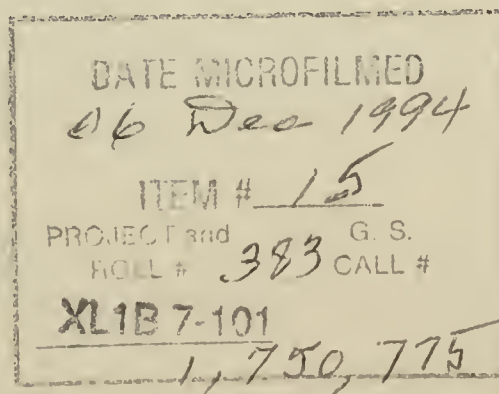 DATE MICROFILMED
06 Dec 1994
ITEM # 15
PROJECT and G. S.
ROLL # 383 CALL #
XL1B 7-101
1,750,775